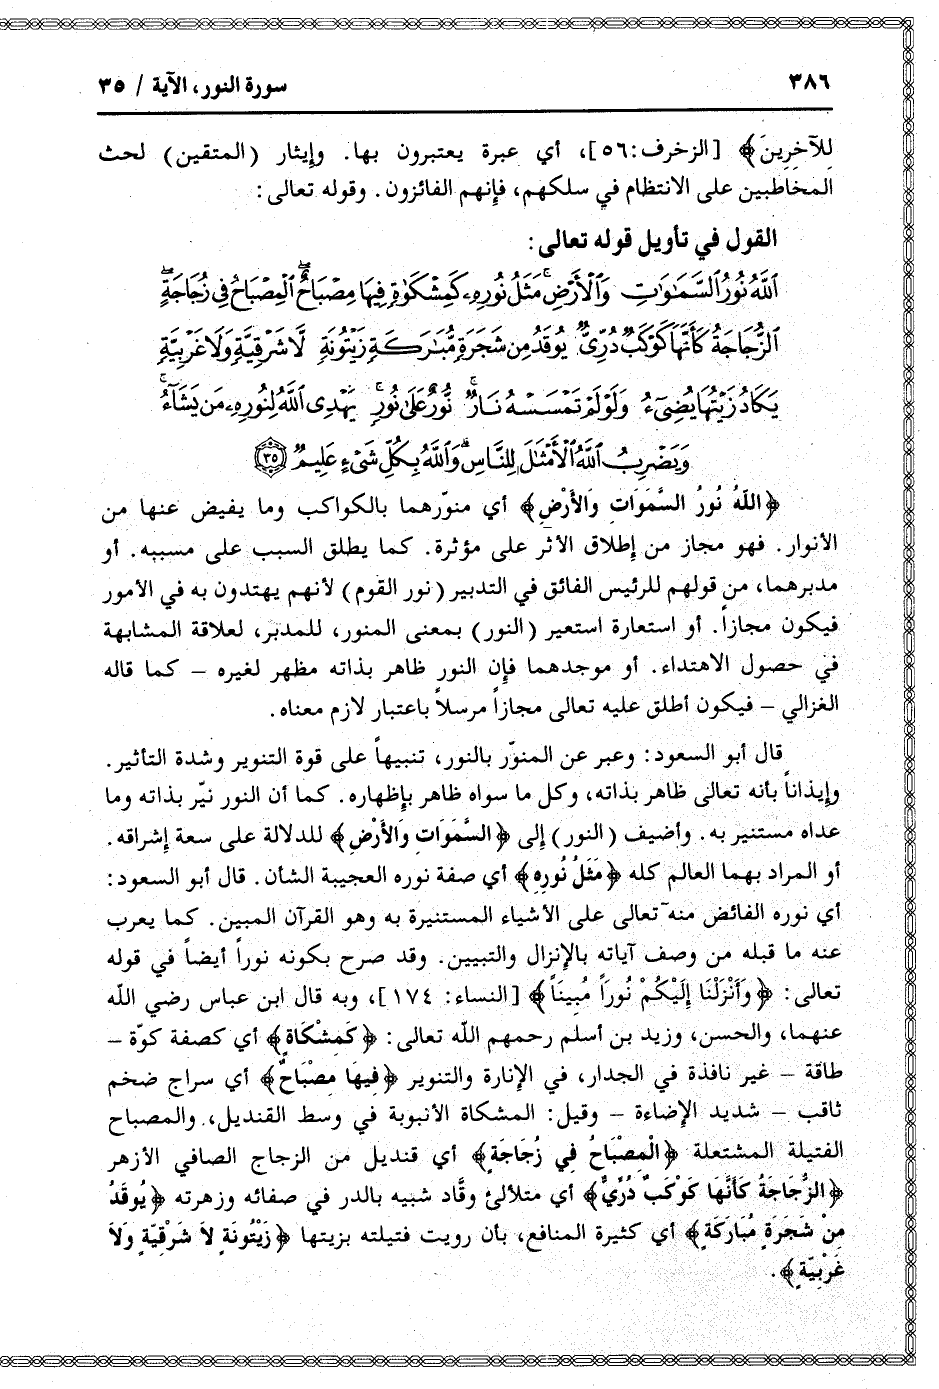 ٣٨٦
سورة النور، الآية / ٣٥
لِلآخِرِينَ﴾ [الزخرف:٥٦]، أي عبرة يعتبرون بها. وإيثار (المتقين) لحث
المخاطبين على الانتظام في سلكهم، فإنهم الفائزون. وقوله تعالى:
القول في تأويل قوله تعالى:
ٱللَّهُ نُورُ ٱلسَّمَٰوَٰتِ وَٱلْأَرْضِۚ مَثَلُ نُورِهِۦ كَمِشْكَوٰةٍ فِيهَا مِصْبَاحٌۖ ٱلْمِصْبَاحُ فِى زُجَاجَةٍۖ
ٱلزُّجَاجَةُ كَأَنَّهَا كَوْكَبٌ دُرِّىٌّ يُوقَدُ مِن شَجَرَةٍ مُّبَٰرَكَةٍ زَيْتُونَةٍ لَّا شَرْقِيَّةٍ وَلَا غَرْبِيَّةٍ
يَكَادُ زَيْتُهَا يُضِىٓءُ وَلَوْ لَمْ تَمْسَسْهُ نَارٌۚ نُّورٌ عَلَىٰ نُورٍۗ يَهْدِى ٱللَّهُ لِنُورِهِۦ مَن يَشَآءُۚ
وَيَضْرِبُ ٱللَّهُ ٱلْأَمْثَٰلَ لِلنَّاسِۗ وَٱللَّهُ بِكُلِّ شَىْءٍ عَلِيمٌ ٣٥
﴿اللَّهُ نُورُ السَّمَوَاتِ وَالأَرْضِ﴾ أي منوّرهما بالكواكب وما يفيض عنها من
الأنوار. فهو مجاز من إطلاق الأثر على مؤثرة. كما يطلق السبب على مسببه. أو
مدبرهما، من قولهم للرئيس الفائق في التدبير (نور القوم) لأنهم يهتدون به في الأمور
فيكون مجازاً. أو استعارة استعير (النور) بمعنى المنور، للمدبر، لعلاقة المشابهة
في حصول الاهتداء. أو موجدهما فإن النور ظاهر بذاته مظهر لغيره – كما قاله
الغزالي – فيكون أطلق عليه تعالى مجازاً مرسلاً باعتبار لازم معناه.
قال أبو السعود: وعبر عن المنوّر بالنور، تنبيهاً على قوة التنوير وشدة التأثير.
وإيذاناً بأنه تعالى ظاهر بذاته، وكل ما سواه ظاهر بإظهاره. كما أن النور نيّر بذاته وما
عداه مستنير به. وأضيف (النور) إلى ﴿السَّمَوَاتِ وَالأَرْضِ﴾ للدلالة على سعة إشراقه.
أو المراد بهما العالم كله ﴿مَثَلُ نُورِهِ﴾ أي صفة نوره العجيبة الشأن. قال أبو السعود:
أي نوره الفائض منه تعالى على الأشياء المستنيرة به وهو القرآن المبين. كما يعرب
عنه ما قبله من وصف آياته بالإنزال والتبيين. وقد صرح بكونه نوراً أيضاً في قوله
تعالى: ﴿وَأَنْزَلْنَا إِلَيْكُمْ نُوراً مُبِيناً﴾ [النساء: ١٧٤]، وبه قال ابن عباس رضي الله
عنهما، والحسن، وزيد بن أسلم رحمهم الله تعالى: ﴿كَمِشْكَاةٍ﴾ أي كصفة كوّة –
طاقة – غير نافذة في الجدار، في الإنارة والتنوير ﴿فِيها مصْبَاحٌ﴾ أي سراج ضخم
ثاقب – شديد الإضاءة – وقيل: المشكاة الأنبوبة في وسط القنديل، والمصباح
الفتيلة المشتعلة ﴿الْمِصْبَاحُ فِي زُجَاجَةٍ﴾ أي قنديل من الزجاج الصافي الأزهر
﴿الزُّجَاجَةُ كَأَنَّهَا كَوْكَبٌ دُرِّيٌّ﴾ أي متلألئ وقَّاد شبيه بالدر في صفائه وزهرته ﴿يُوقَدُ
مِنْ شَجَرَةٍ مُبَارَكَةٍ﴾ أي كثيرة المنافع، بأن رويت فتيلته بزيتها ﴿زَيْتُونَةٍ لاَ شَرْقِيّةٍ وَلاَ
غَرْبِيّةٍ﴾.